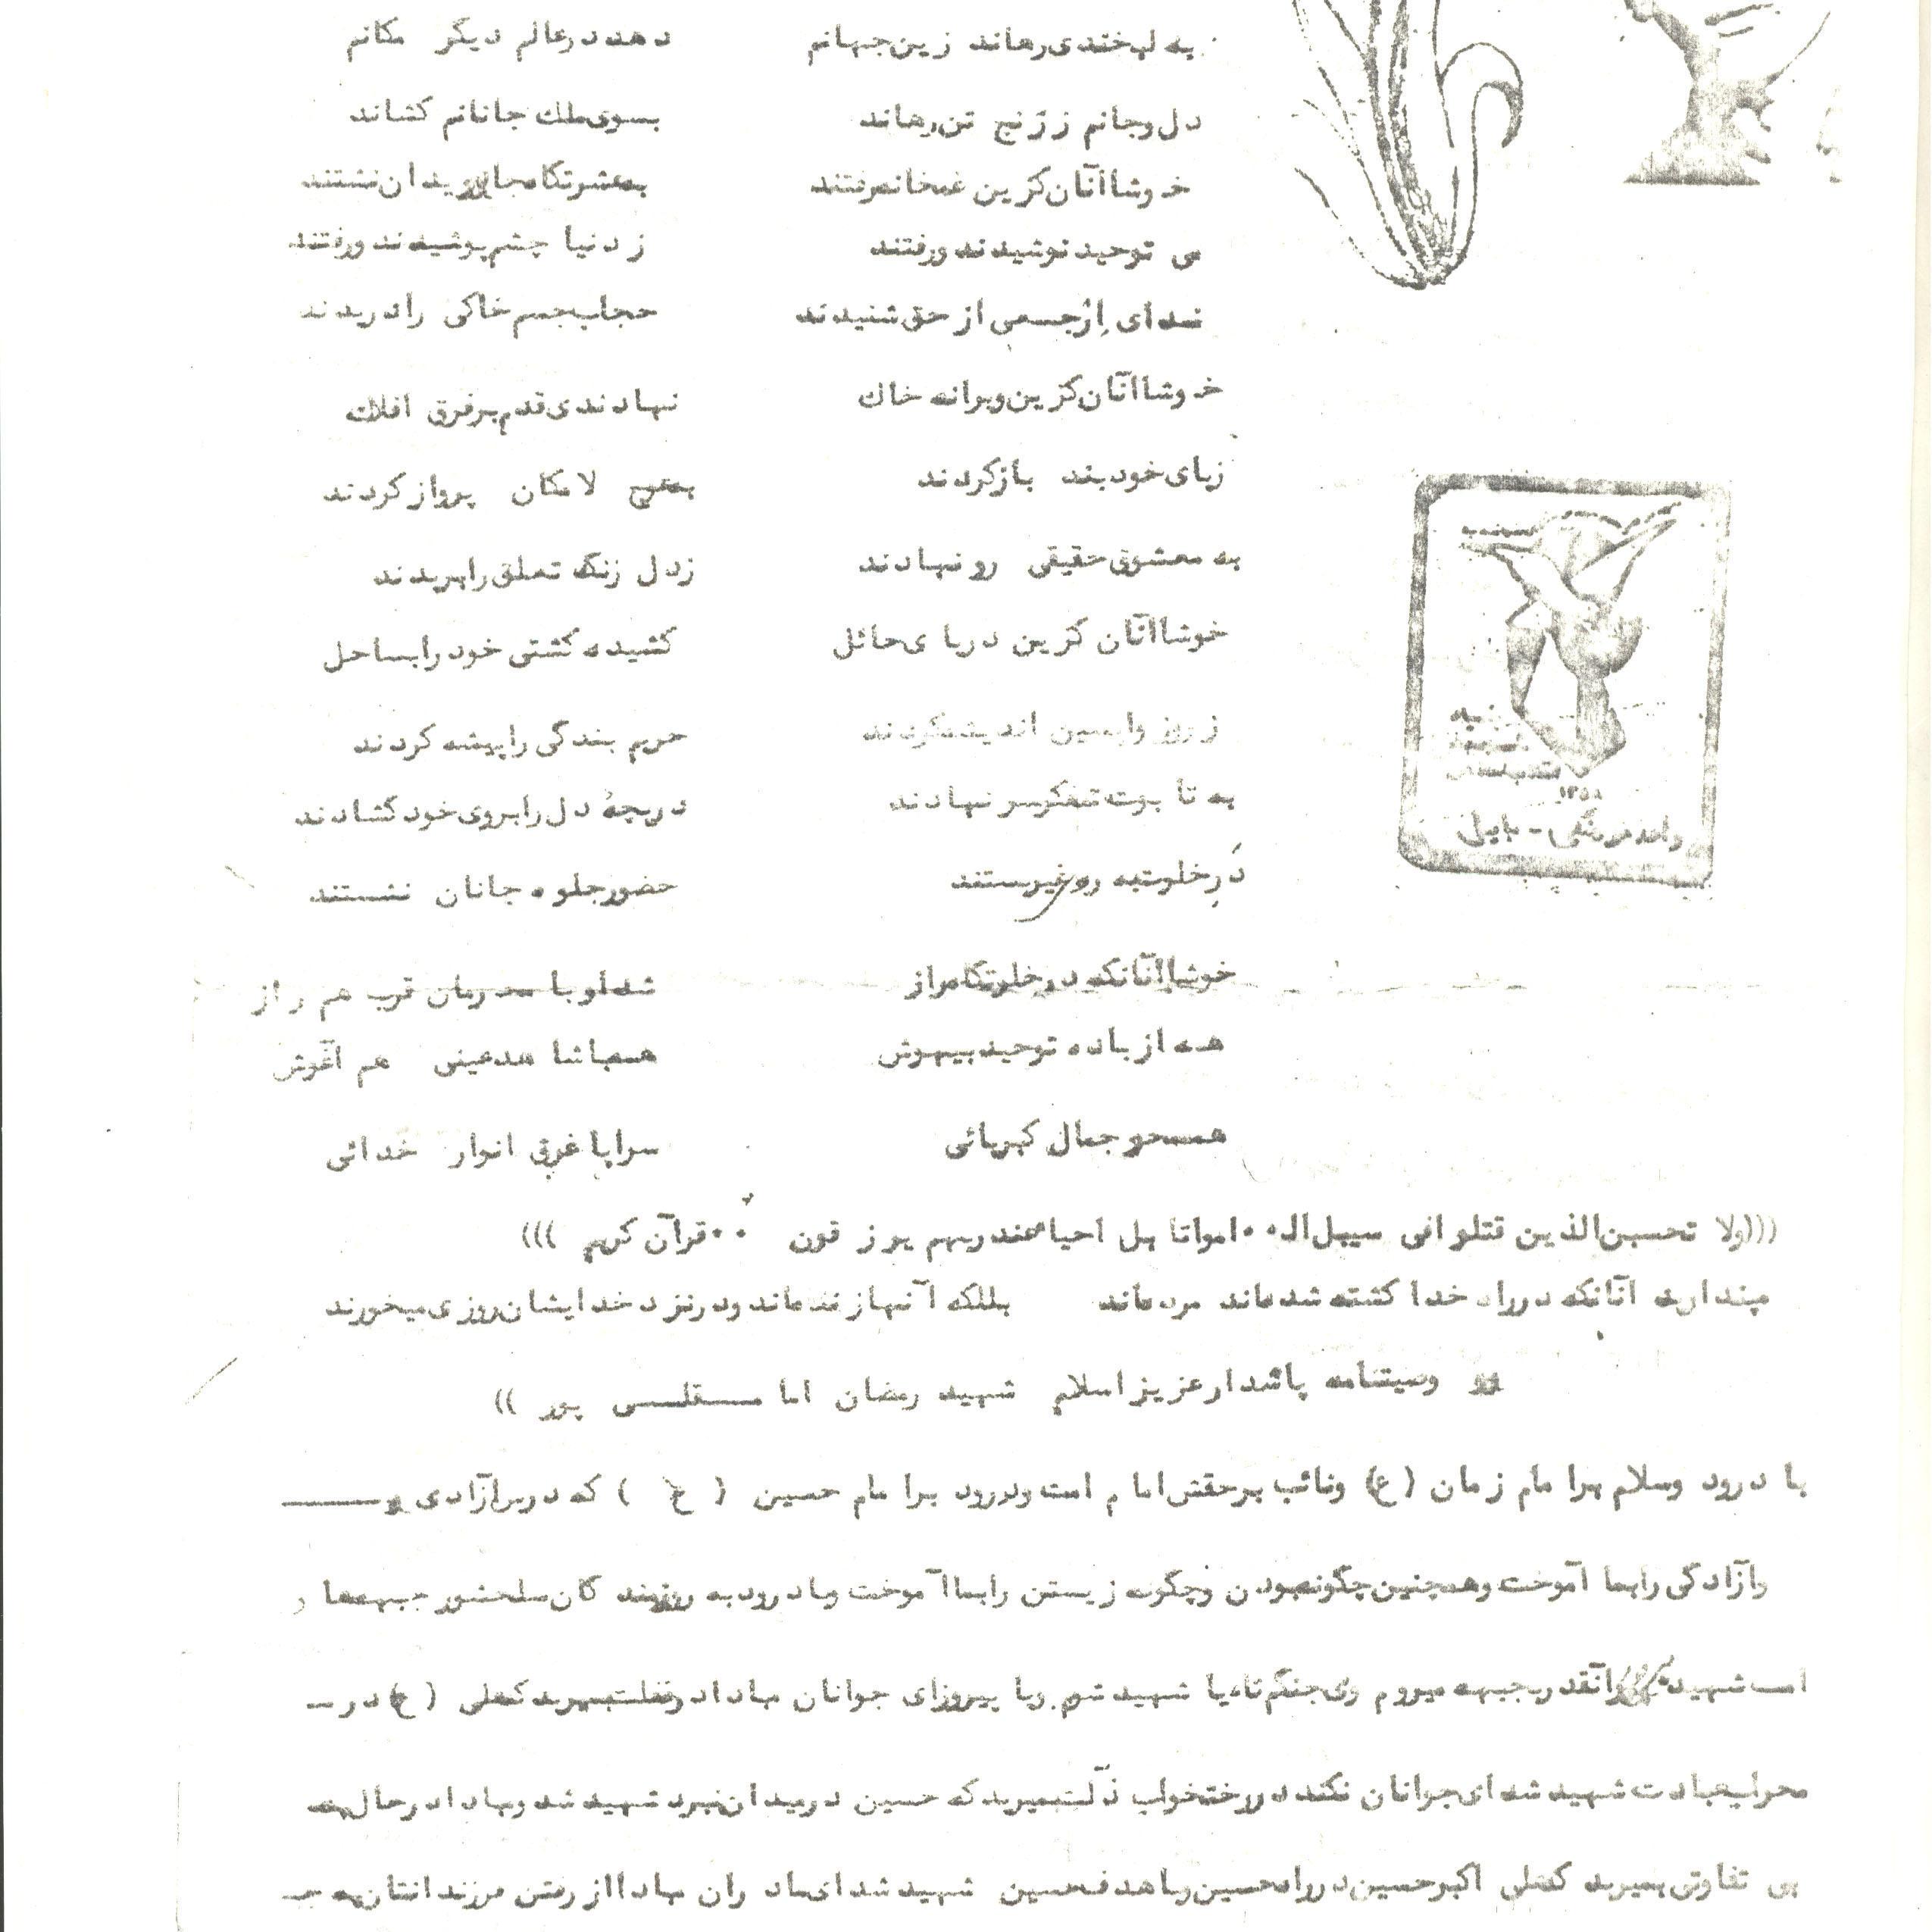 به لبخندی رهاند زین جهانم دهد در عالم دیگر مکانم
دل و جانم ز رنج تن رهاند بسوی ملک جانانم کشاند
خوشا آنان کزین غمخانه رفتند به عشرتگاه جاویدان نشستند
می توحید نوشیدند و رفتند ز دنیا چشم پوشیدند و رفتند
ندای ارجعی از حق شنیدند حجاب جسم خاکی را دریدند
خوشا آنان کزین ویرانه خاک نهادندی قدم بر فرق افلاک
زپای خود بند باز کردند لامکان پرواز کردند
به معشوق حقیقی رو نهادند زدل زنگ تعلق را بریدند
خوشا آنان کزین دریا ی حائل کشیده کشتی خود را بساحل
ز روز واپسین اندیشه کردند حریم بندگی را پیشه کردند
به تا بوت تفکر سر نهادند دریچهٔ دل را بروی خود گشادند
در خلوت به روی غیر بستند حضور جلوه جانان نشستند
خوشا آنانکه در خلوتگاه راز قرب هم راز
همه از باده توحید بیهوش هم آغوش
همه محو جمال کبریائی سراپا غرق انوار خدائی
(((ولا تحسبن الذین قتلو افی سبیل ال‍ه امواتا بل احیا عند ربهم یرز قون ۰۰قرآن کریم )))
مپندارید آنانکه در راه خدا کشته شده‌اند مرده‌اند بللکه آنها زنده‌اند و در نزد خدایشان روزی میخورند
وصیتنامه پاسدار عزیز اسلام شهید رمضان اما مـــقلـــی پور ))
با درود وسلام برا مام زمان (ع) ونائب بر حقش اما م امت و درود برا مام حسین ( ع ) که در برابر آزادی
و آزادگی را بما آموخت و همچنین چگونه بودن و چگونه زیستن را بما آموخت و با درود به رزمند گان سلحشور جبهه‌ها و
امت شهید و آنقدر بجبهه میروم و می‌جنگم تا شهید شوم و یا پیروز ای جوانان مبادا در غفلت بمیرید که علی (ع) در ــ
محراب عبادت شهید شد ای جوانان نکند در رختخواب ذلّت بمیرید که حسین در میدان نبرد شهید شد و مبادا در حال
بی تفاوتی بمیرید که علی اکبر حسین در راه حسین و با هدف حسین شهید شد ای ماد ران مبادا از رفتن فرزندانتان به جــ
۱۳۵۸
واحد فرهنگی - بابل